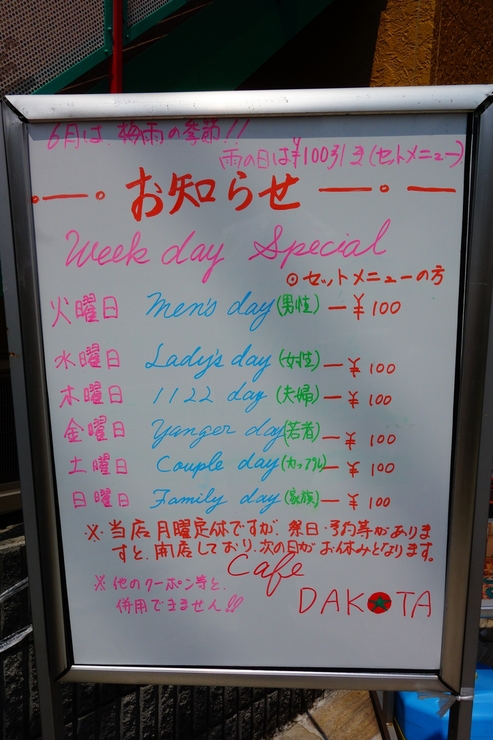 6月は、梅雨の季節!!
雨の日は¥100引き(セットメニュー)
お知らせ
Week day Special
⊙セットメニューの方
火曜日 Men's day (男性) ー¥100
水曜日 Lady's day (女性) ー¥100
木曜日 1122 day (夫婦) ー¥100
金曜日 Yanger day (若者) ー¥100
土曜日 Couple day (カップル) ー¥100
日曜日 Family day (家族) ー¥100
※当店月曜定休ですが、祭日・予約等がありま
すと、開店しており、次の日がお休みとなります。
Cafe
DAKOTA
※他のクーポン等と、
併用できません!!